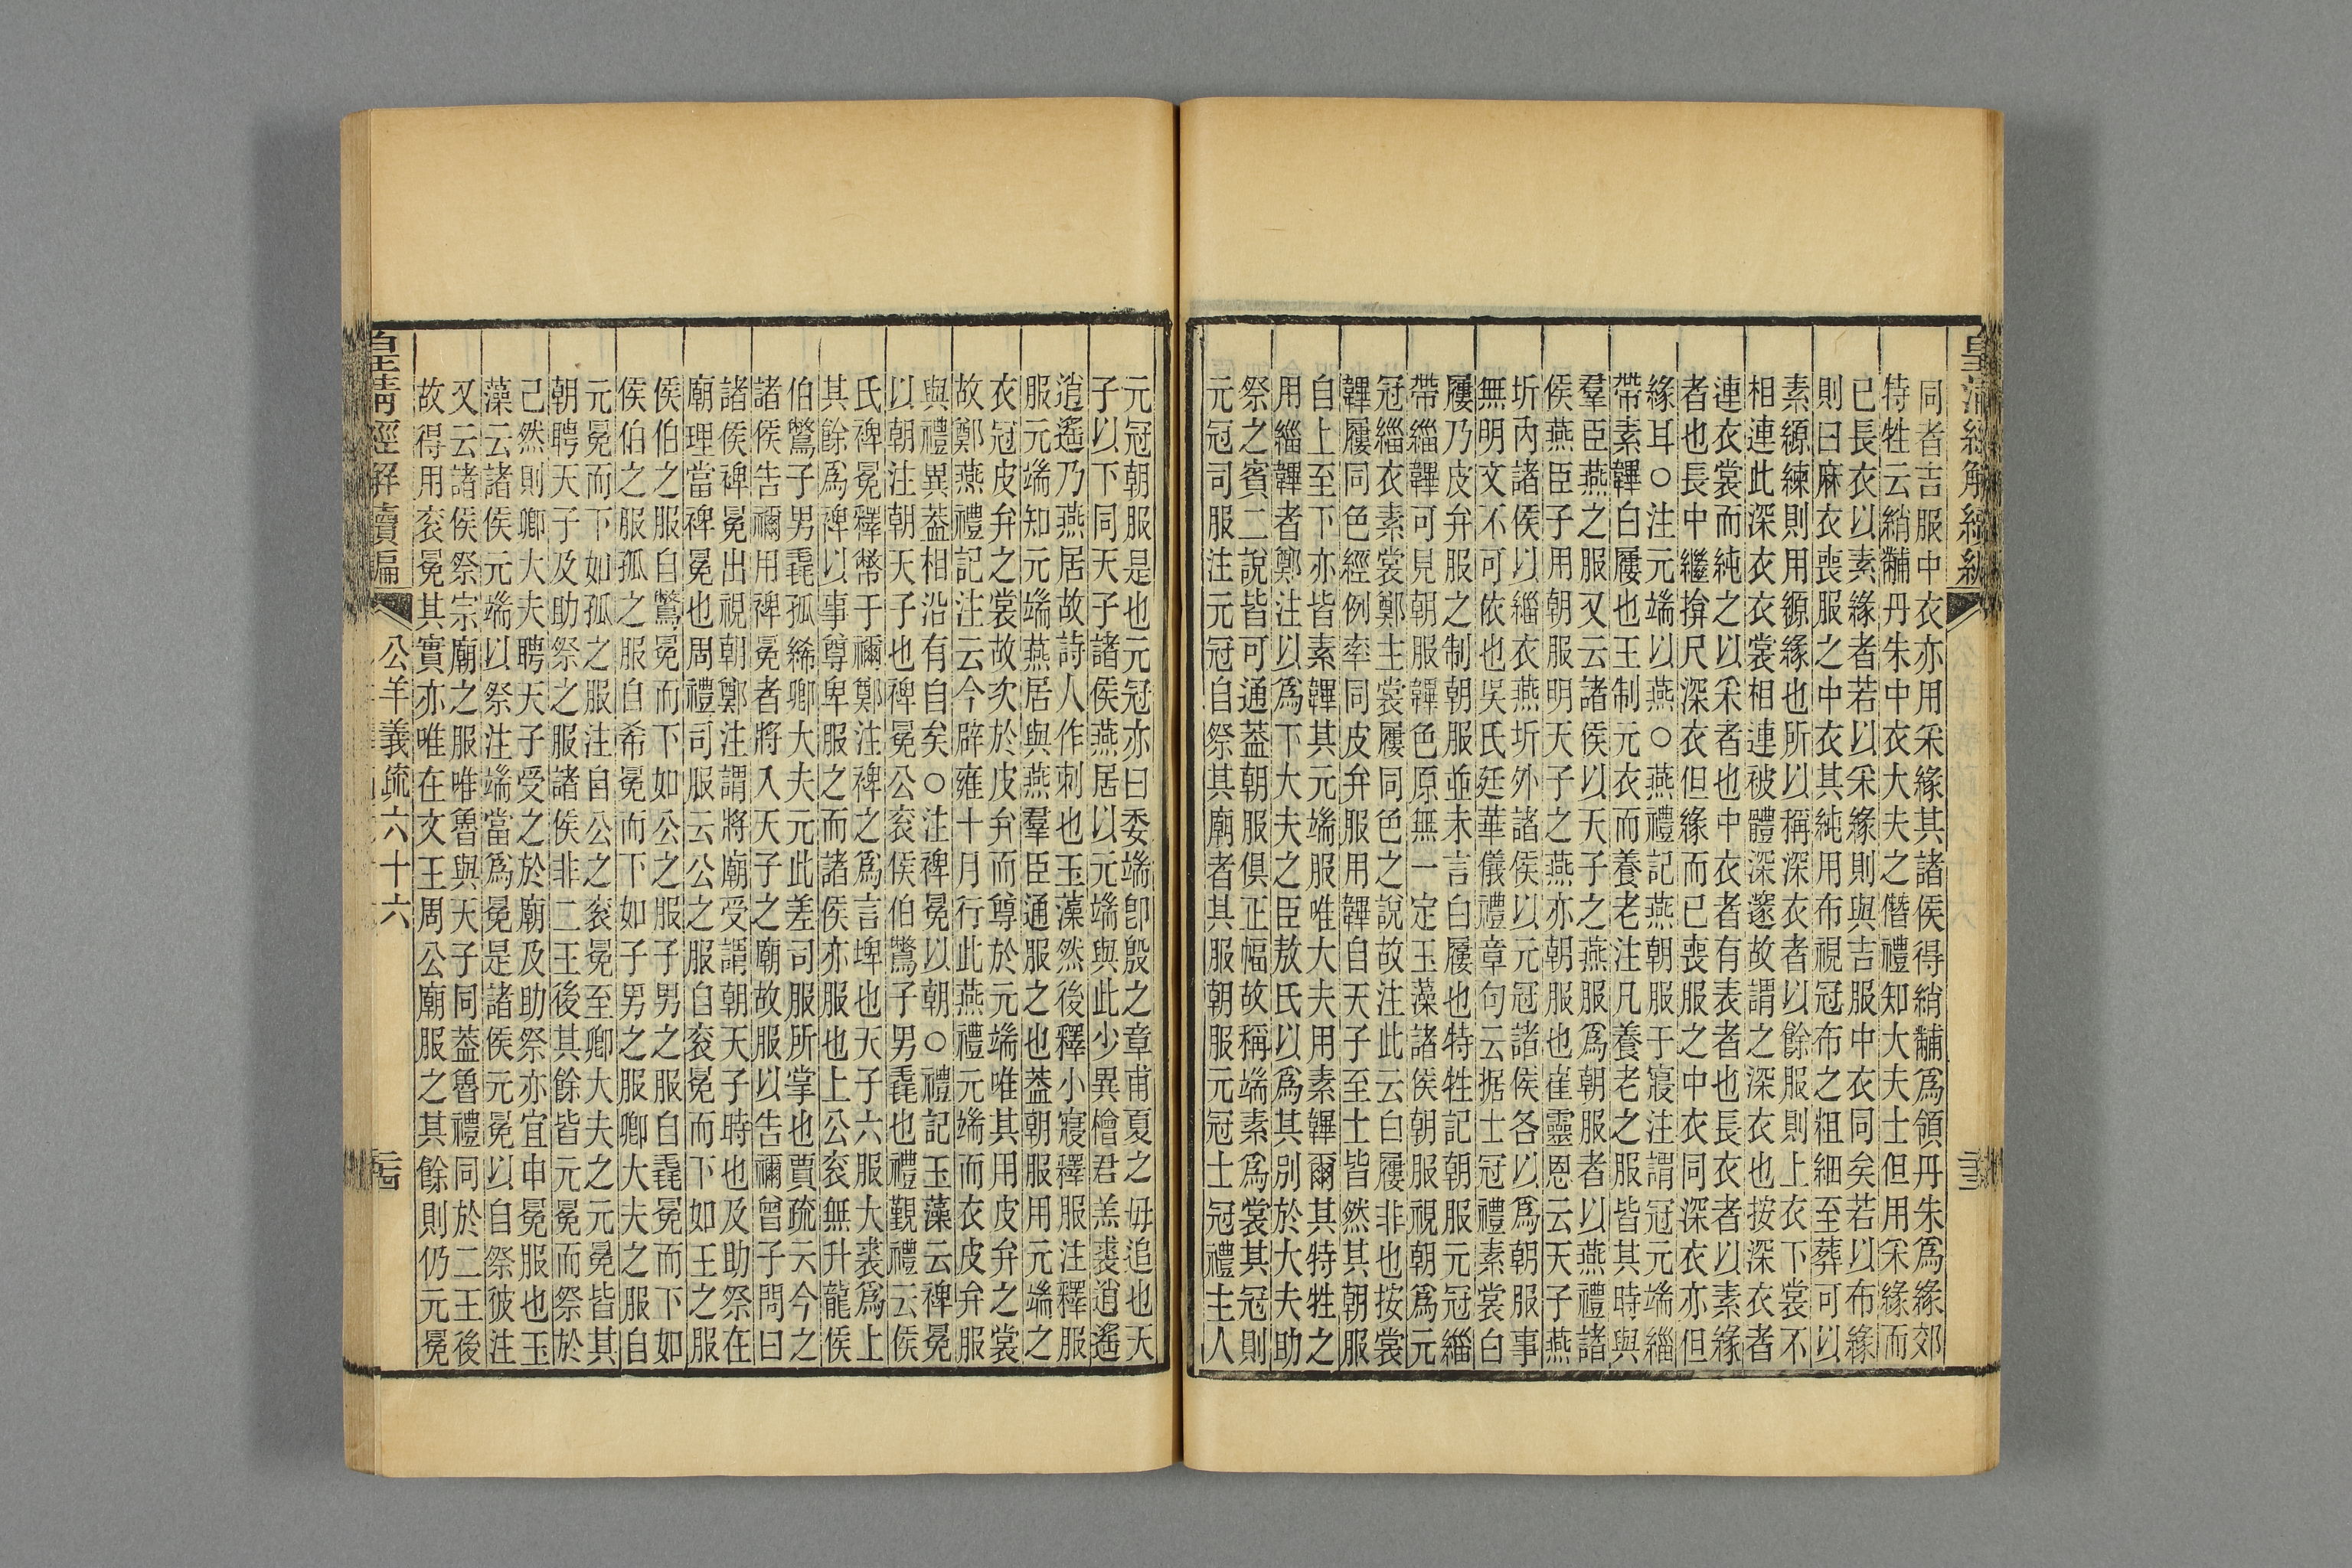 皇清經解續編
同者吉服中衣亦用采緣其諸侯得綃黼爲領丹朱爲緣郊
特牲云綃黼丹朱中衣大夫之僭禮知大夫士但用采緣而
已長衣以素緣者若以采緣則與吉服中衣同矣若以布緣
則曰麻衣喪服之中衣其純用布視冠布之粗細至葬可以
素縓練則用縓緣也所以稱深衣者以餘服則上衣下裳不
相連此深衣衣裳相連被體深邃故謂之深衣也按深衣者
連衣裳而純之以采者也中衣者有表者也長衣者以素緣
者也長中繼揜尺深衣但緣而已喪服之中衣同深衣亦但
緣耳○注元端以燕○燕禮記燕朝服于寢注謂冠元端緇
帶素韠白屨也王制元衣而養老注凡養老之服皆其時與
羣臣燕之服又云諸侯以天子之燕服爲朝服者以燕禮諸
侯燕臣子用朝服明天子之燕亦朝服也崔靈恩云天子燕
圻內諸侯以緇衣燕圻外諸侯以元冠諸侯各以爲朝服事
無明文不可依也吳氏廷華儀禮章句云据士冠禮素裳白
屨乃皮弁服之制朝服並未言白屨也特牲記朝服元冠緇
帶緇韠可見朝服韠色原無一定玉藻諸侯朝服視朝爲元
冠緇衣素裳鄭主裳屨同色之說故注此云白屨非也按裳
韠屨同色經例率同皮弁服用韠自天子至士皆然其朝服
自上至下亦皆素韠其元端服唯大夫用素韠爾其特牲之
用緇韠者鄭注以爲下大夫之臣敖氏以爲其別於大夫助
祭之賓二說皆可通蓋朝服俱正幅故稱端素爲裳其冠則
元冠司服注元冠自祭其廟者其服朝服元冠士冠禮主人
元冠朝服是也元冠亦曰委端卽殷之章甫夏之毋追也天
子以下同天子諸侯燕居以元端與此少異檜君羔裘逍遙
逍遙乃燕居故詩人作刺也玉藻然後釋小寢釋服注釋服
服元端知元端燕居與燕羣臣通服之也蓋朝服用元端之
衣冠皮弁之裳故次於皮弁而尊於元端唯其用皮弁之裳
故鄭燕禮記注云今辟雍十月行此燕禮元端而衣皮弁服
與禮異蓋相沿有自矣○注裨冕以朝○禮記玉藻云裨冕
以朝注朝天子也裨冕公衮侯伯鷩子男毳也禮覲禮云侯
氏裨冕釋幣于禰鄭注裨之爲言埤也天子六服大裘爲上
其餘爲裨以事尊卑服之而諸侯亦服也上公衮無升龍侯
伯鷩子男毳孤絺卿大夫元此差司服所掌也賈疏云今之
諸侯告禰用裨冕者將入天子之廟故服以告禰曾子問曰
諸侯裨冕出視朝鄭注謂將廟受謂朝天子時也及助祭在
廟理當裨冕也周禮司服云公之服自衮冕而下如王之服
侯伯之服自鷩冕而下如公之服子男之服自毳冕而下如
侯伯之服孤之服自希冕而下如子男之服卿大夫之服自
元冕而下如孤之服注自公之衮冕至卿大夫之元冕皆其
朝聘天子及助祭之服諸侯非二王後其餘皆元冕而祭於
己然則卿大夫聘天子受之於廟及助祭亦宜申冕服也玉
藻云諸侯元端以祭注端當爲冕是諸侯元冕以自祭彼注
又云諸侯祭宗廟之服唯魯與天子同蓋魯禮同於二王後
故得用衮冕其實亦唯在文王周公廟服之其餘則仍元冕
皇淸經解續編
公羊義疏六十六